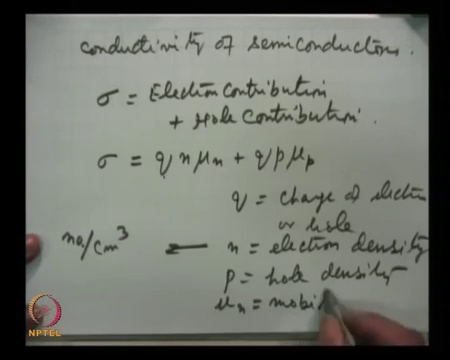 conductivity of semiconductors.
σ = Electron contribution
+ Hole contribution.
σ = q n μn + q p μp
q = charge of electron
or hole
no/cm³ ← n = electron density
p = hole density
μn = mobi
NPTEL